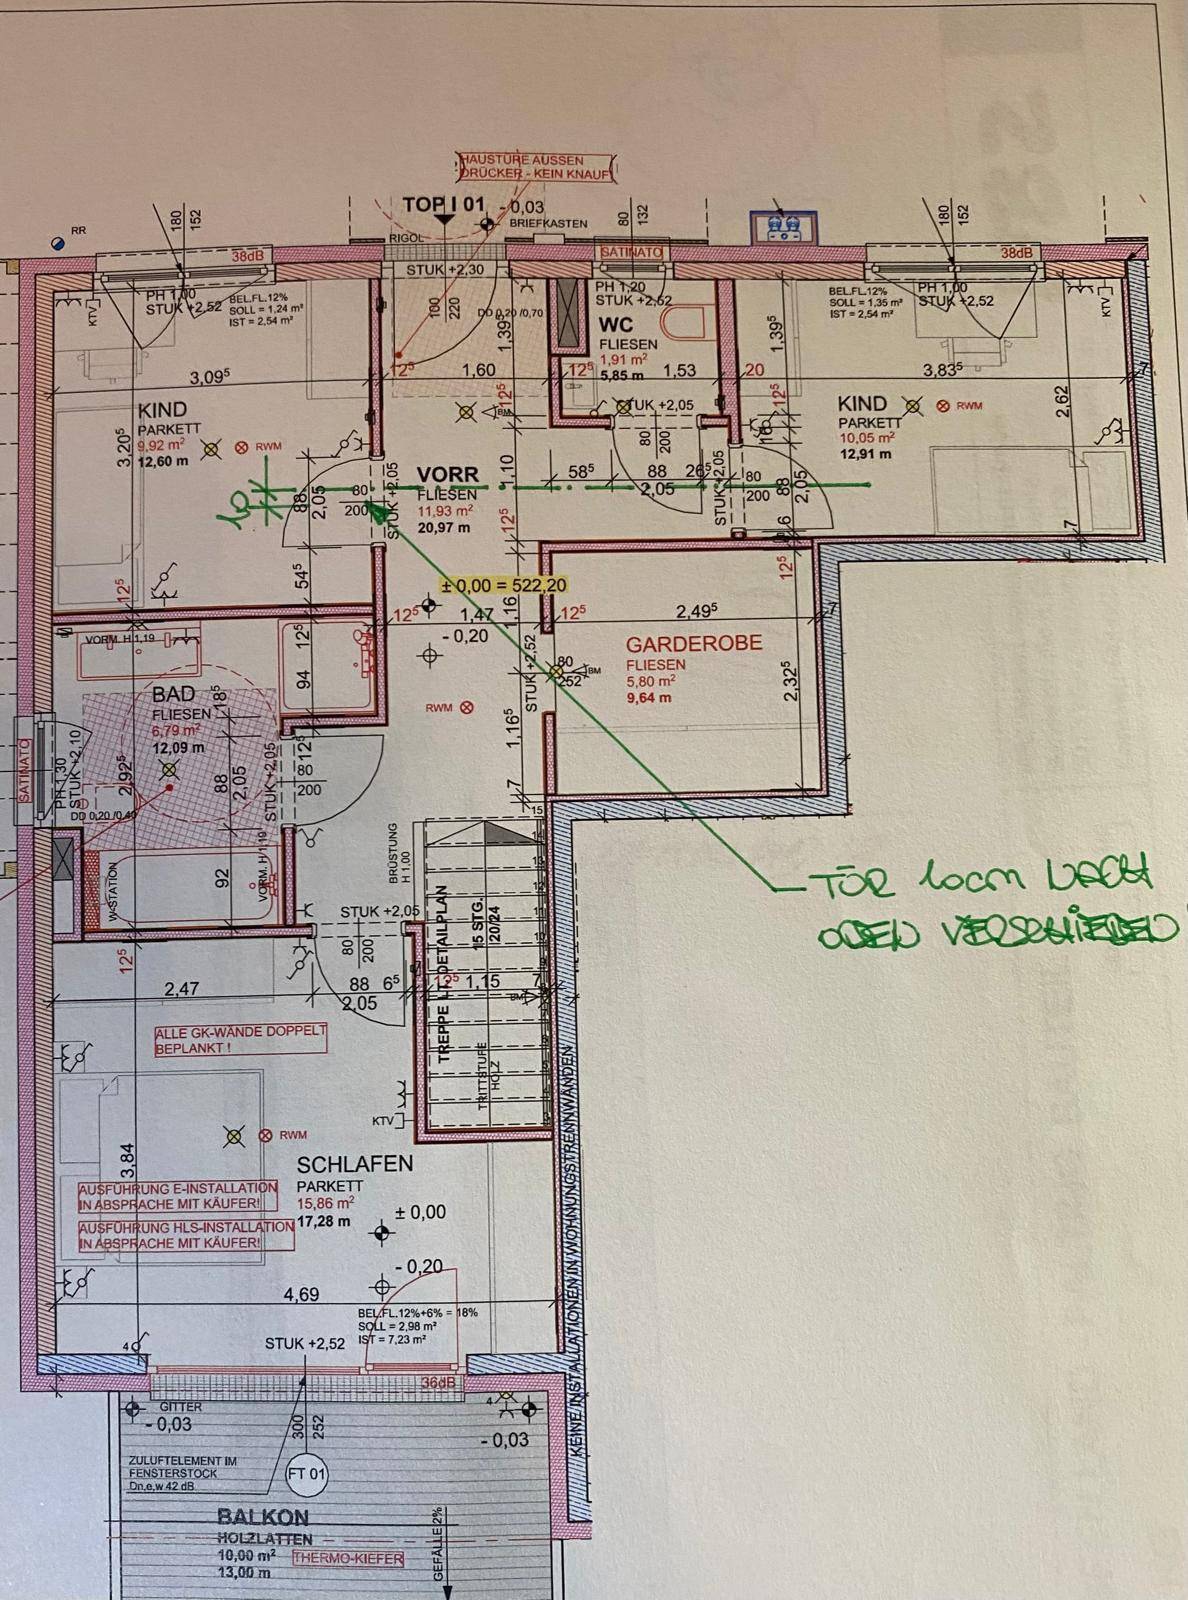 HAUSTÜRE AUSSEN
DRÜCKER - KEIN KNAUF
TOP I 01
- 0,03
BRIEFKASTEN
RIGOL
RR
180
152
38dB
PH 1,00
STUK +2,52
BEL.FL.12%
SOLL = 1,24 m²
IST = 2,54 m²
KTV
STUK +2,30
100
220
DD 0,20 /0,70
1,39⁵
80
132
SATINATO
PH 1,20
STUK +2,52
WC
FLIESEN
1,91 m²
5,85 m
180
152
38dB
BEL.FL.12%
SOLL = 1,35 m²
IST = 2,54 m²
PH 1,00
STUK +2,52
KTV
1,39⁵
3,09⁵
12⁵
1,60
12⁵
1,53
20
3,83⁵
7
KIND
PARKETT
9,92 m²
12,60 m
RWM
3,20⁵
12⁵
BM
STUK +2,05
80
200
12⁵
16
KIND
PARKETT
10,05 m²
12,91 m
RWM
2,62
VORR
FLIESEN
11,93 m²
20,97 m
1,10
58⁵
88
26⁵
2,05
STUK +2,05
80
200
88
2,05
6
7
10
88
2,05
80
200
STUK +2,05
12⁵
54⁵
12⁵
± 0,00 = 522,20
12⁵
1,47
1,16
12⁵
2,49⁵
7
12⁵
- 0,20
GARDEROBE
FLIESEN
5,80 m²
9,64 m
2,32⁵
STUK +2,52
80
252
BM
RWM
1,16⁵
7
VORM. H 1,19
12⁵
94
BAD
FLIESEN
6,79 m²
12,09 m
18⁵
2,92⁵
88
2,05
STUK +2,05
12⁵
80
200
SATINATO
PH 1,30
STUK +2,10
DD 0,20 /0,40
W-STATION
92
VORM. H 1,19
BRÜSTUNG
H 1,00
15
TÜR 10cm NACH
ODEN VERSCHIEDEN
STUK +2,05
80
200
TREPPE LT. DETAILPLAN
15 STG.
20/24
TRITTSTUFE
HOLZ
12⁵
2,47
88
6⁵
2,05
12⁵
1,15
7
BM
ALLE GK-WÄNDE DOPPELT
BEPLANKT !
KTV
RWM
3,84
SCHLAFEN
PARKETT
15,86 m²
17,28 m
AUSFÜHRUNG E-INSTALLATION
IN ABSPRACHE MIT KÄUFER!
AUSFÜHRUNG HLS-INSTALLATION
IN ABSPRACHE MIT KÄUFER!
± 0,00
- 0,20
4,69
BEL.FL.12%+6% = 18%
SOLL = 2,98 m²
IST = 7,23 m²
STUK +2,52
4
36dB
KEINE INSTALLATIONEN IN WOHNUNGSTRENNWÄNDEN
GITTER
- 0,03
300
252
4
- 0,03
ZULUFTELEMENT IM
FENSTERSTOCK
Dn,e,w 42 dB
FT 01
BALKON
HOLZLATTEN
10,00 m²
13,00 m
THERMO-KIEFER
GEFÄLLE 2%